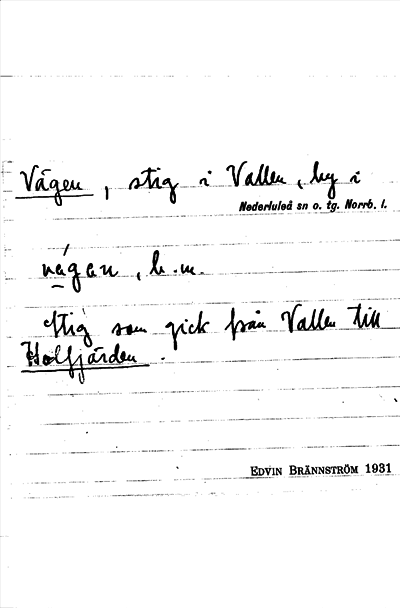 Vägen, stig i Vallen, by i
Nederluleå sn o. tg. Norrb. l.
vägan, b.m.
Stig som gick från Vallen till
Holfjärden.
EDVIN BRÄNNSTRÖM 1931